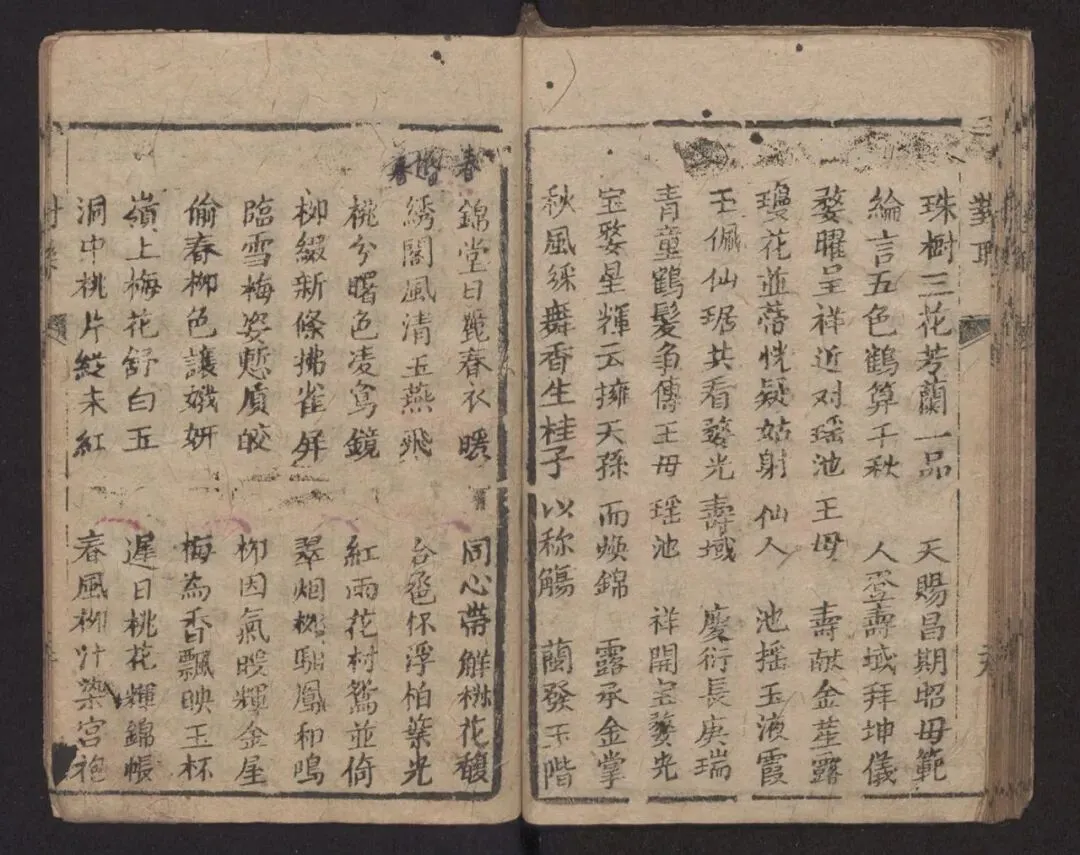 對聯
珠樹三花芳蘭一品 天賜昌期昭母範
綸言五色鶴算千秋 人登壽域拜坤儀
婺曜呈祥近对瑶池王母 壽献金莖露
瓊花並蒂恍疑姑射仙人 池摇玉液霞
玉佩仙琚共看婺光壽域 慶衍長庚瑞
青童鶴髮争傳王母瑶池 祥開宝婺光
宝婺星輝云擁天孫而焕錦 露承金掌
秋風綵舞香生桂子以称觴 蘭發玉階
春婚春
錦堂日麗春衣暖 同心帶解桃花馥
綉閣風清玉燕飛 合卺杯浮柏葉光
桃兮曙色凌鸞鏡 紅雨花村鴛並倚
柳綴新條拂雀屏 翠烟柳馹鳳和鳴
臨雪梅姿慙質皎 柳因氣暖輝金屋
偷春柳色讓娥妍 梅為香飄映玉杯
嶺上梅花舒白玉 遲日桃花輝錦帳
洞中桃片綻未紅 春風柳汁染宫袍